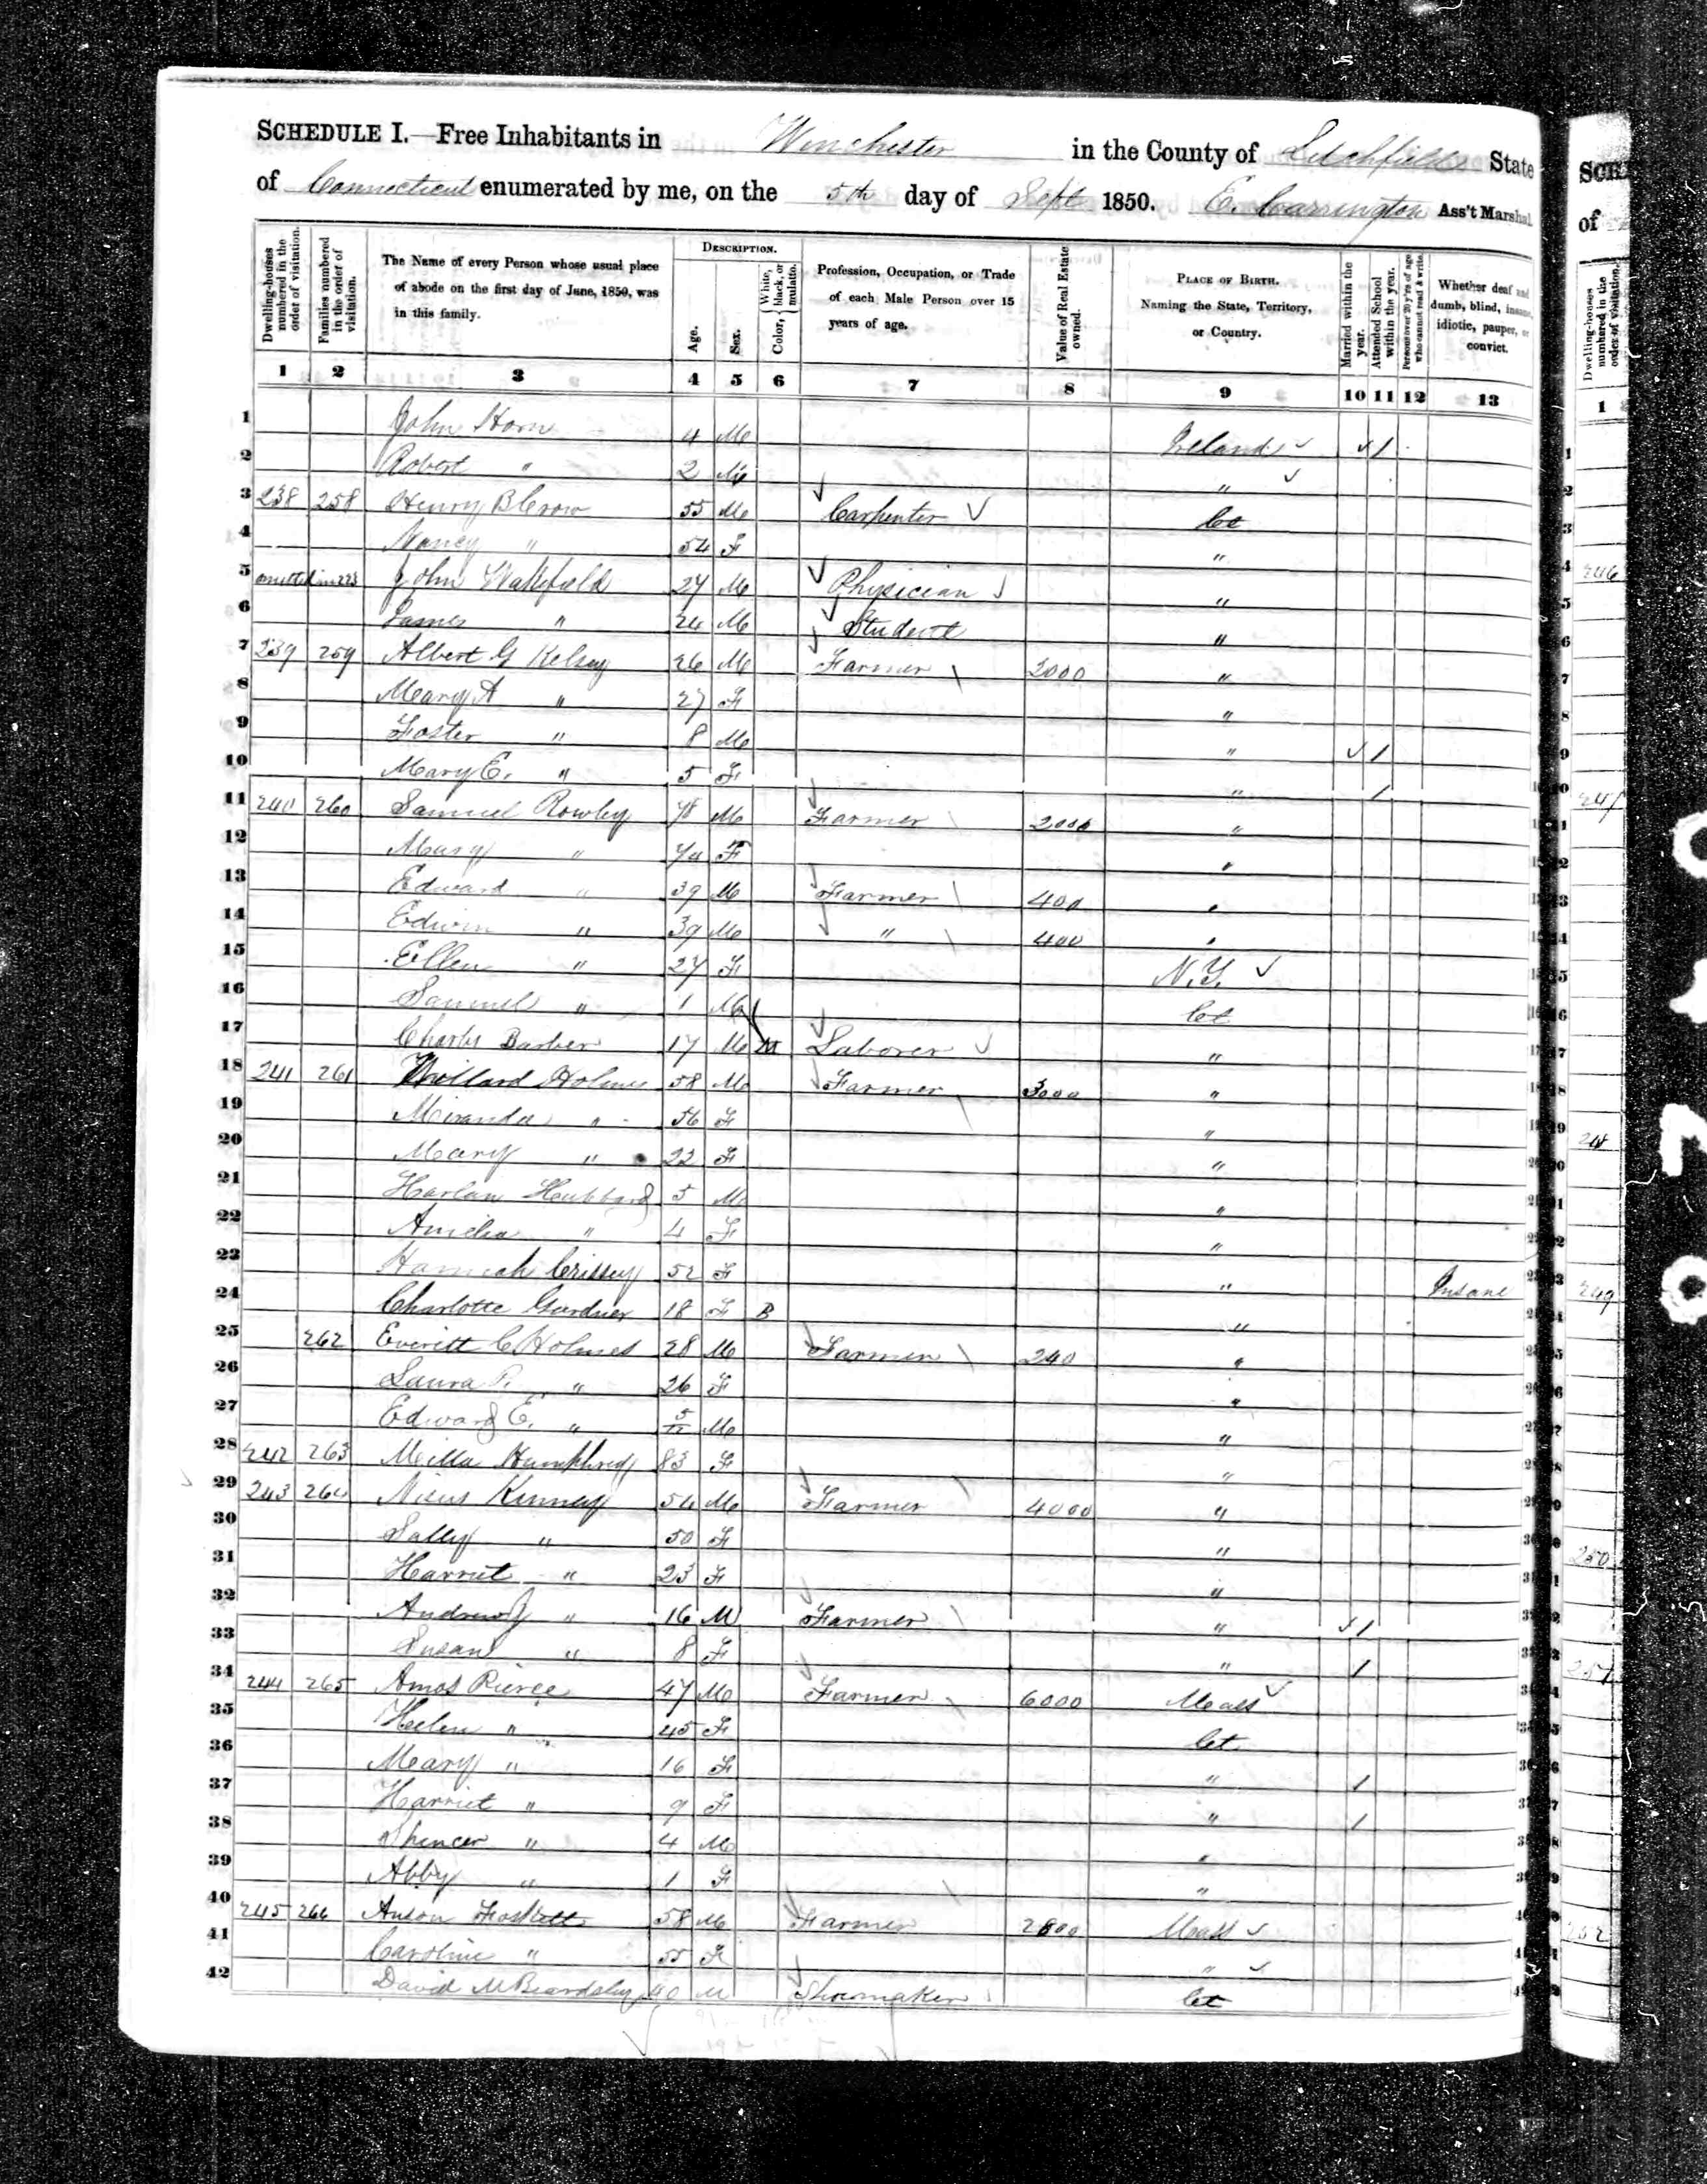 SCHEDULE I.—Free Inhabitants in Winchester in the County of Litchfield State
of Connecticut enumerated by me, on the 5th day of Sept 1850. E. Carrington Ass't Marshal
Dwelling-houses numbered in the order of visitation.
Families numbered in the order of visitation.
The Name of every Person whose usual place of abode on the first day of June, 1850, was in this family.
DESCRIPTION.
Age.
Sex.
Color, { White, black, or mulatto.
Profession, Occupation, or Trade of each Male Person over 15 years of age.
Value of Real Estate owned.
PLACE OF BIRTH. Naming the State, Territory, or Country.
Married within the year.
Attended School within the year.
Persons over 20 y'rs of age who cannot read & write.
Whether deaf and dumb, blind, insane, idiotic, pauper, or convict.
1 2 3 4 5 6 7 8 9 10 11 12 13
1 John Horn 4 M Ireland ✓ ✓ 1
2 Robert " 2 M " ✓
3 238 258 Henry B Crow 55 M Carpenter ✓ Ct
4 Nancy " 54 F "
5 omitted in 223 John Wakefield 27 M Physician "
6 James " 24 M Student "
7 239 259 Albert G Kelsey 26 M Farmer 2000 "
8 Mary A " 27 F "
9 Foster " 8 M " ✓ 1
10 Mary E. " 5 F " 1
11 240 260 Samuel Rowley 78 M Farmer 2000 "
12 Mary " 74 F "
13 Edward " 39 M Farmer 400 "
14 Edwin " 39 M " 400 "
15 Ellen " 27 F N.Y. ✓
16 Samuel " 1 M Ct
17 Charles Barber 17 M M Laborer ✓ "
18 241 261 Willard Holmes 58 M Farmer 3000 "
19 Miranda " 56 F "
20 Mary " 22 F "
21 Harlan Hubbard 5 M "
22 Amelia " 4 F "
23 Hannah Crissey 52 F " Insane
24 Charlotte Gardner 18 F B "
25 262 Everitt C Holmes 28 M Farmer 240 "
26 Laura P. " 26 F "
27 Edward E. " 5/12 M "
28 242 263 Milla Humphrey 83 F "
29 243 264 Kinney 54 M Farmer 4000 "
30 Sally " 50 F "
31 Harriet " 23 F "
32 Andrew J " 16 M Farmer " ✓ 1
33 Susan " 8 F " 1
34 244 265 Amos Pierce 47 M Farmer 6000 Mass ✓
35 Helen " 45 F Ct
36 Mary " 16 F " 1
37 Harriet " 9 F " 1
38 Spencer " 4 M "
39 Abby " 1 F "
40 245 266 Anson Foskett 58 M Farmer 2800 Mass ✓
41 Caroline " 55 F " ✓
42 David M Beardsley 40 M Shoemaker Ct
SCHE
of
Dwelling-houses numbered in the order of visitation.
1
246
247
248
249
250
251
252